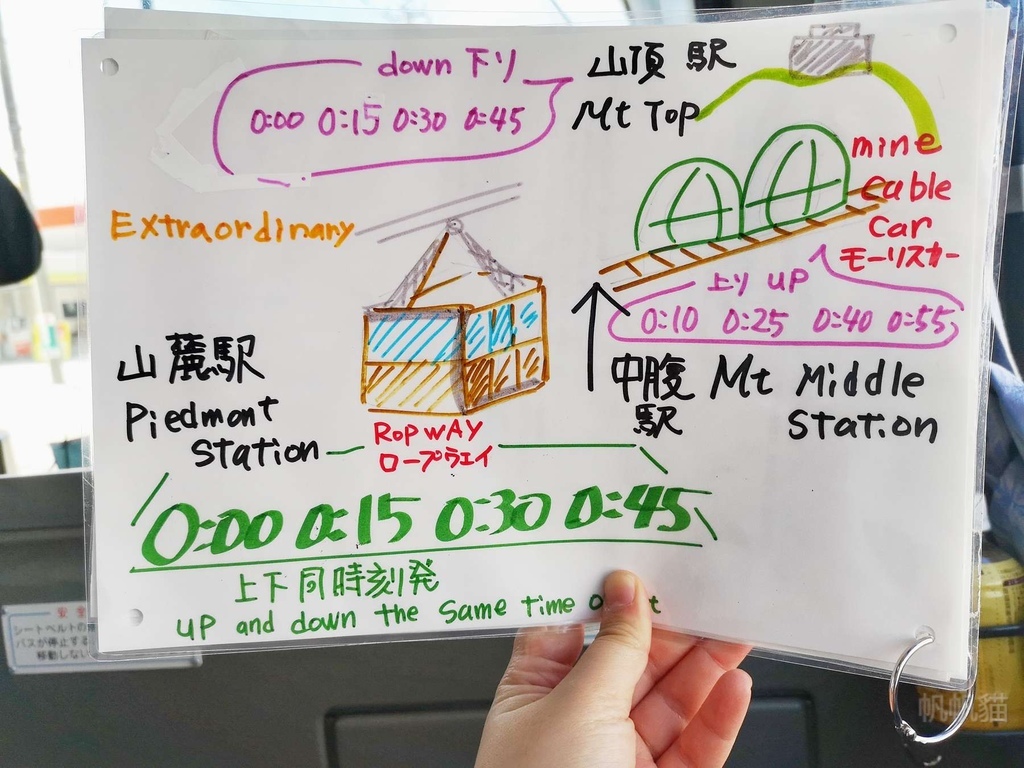 down 下り
0:00 0:15 0:30 0:45
山頂駅
Mt Top
mine
cable
car
モーリスカー
上り UP
0:10 0:25 0:40 0:55
中腹 Mt Middle
駅 Station
Extraordinary
山麓駅
Piedmont
Station
RopWAY
ロープウェイ
0:00 0:15 0:30 0:45
上下同時刻発
UP and down the same time
安全
シートベルトの
バスが停止する
移動しない
帆帆貓